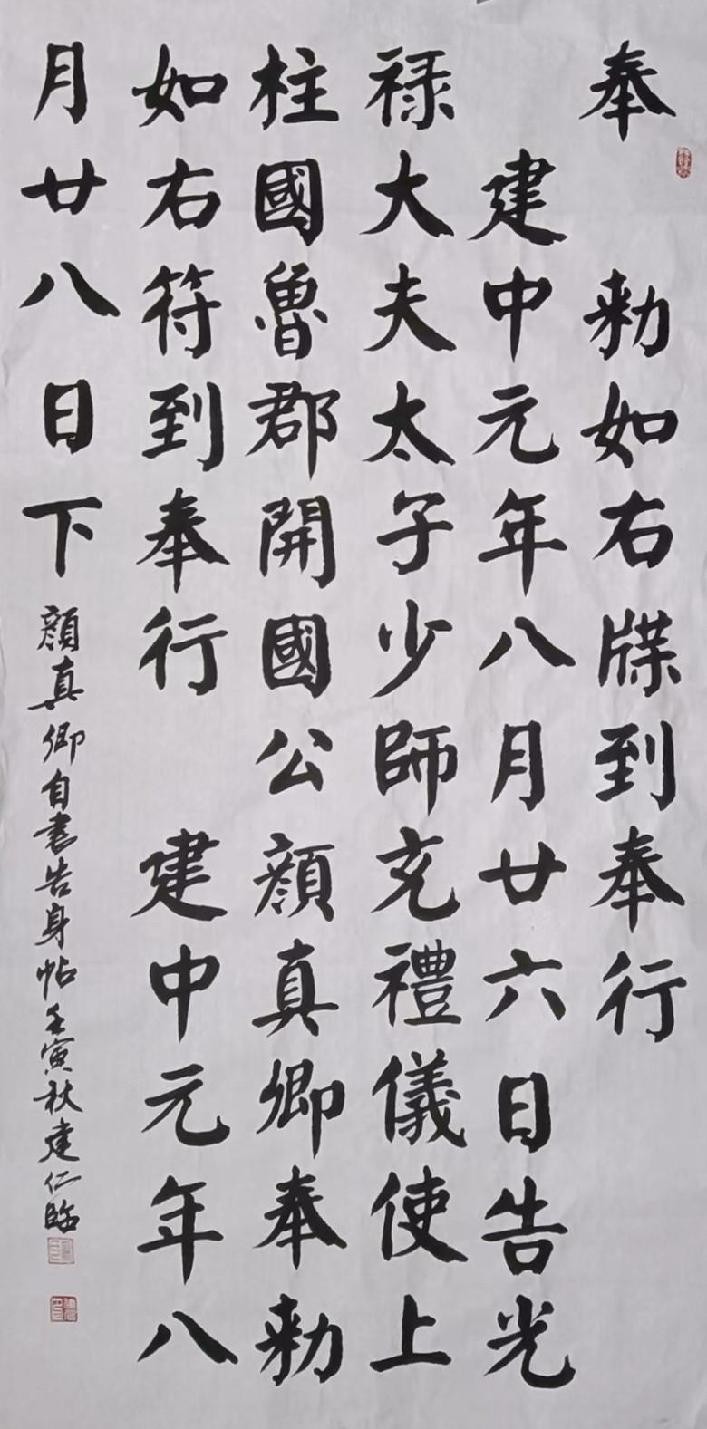 奉 勑如右牒到奉行
建中元年八月廿六日告光
禄大夫太子少師充禮儀使上
柱國魯郡開國公顔真卿奉勑
如右符到奉行 建中元年八
月廿八日下
顔真卿自書告身帖壬寅秋建仁臨